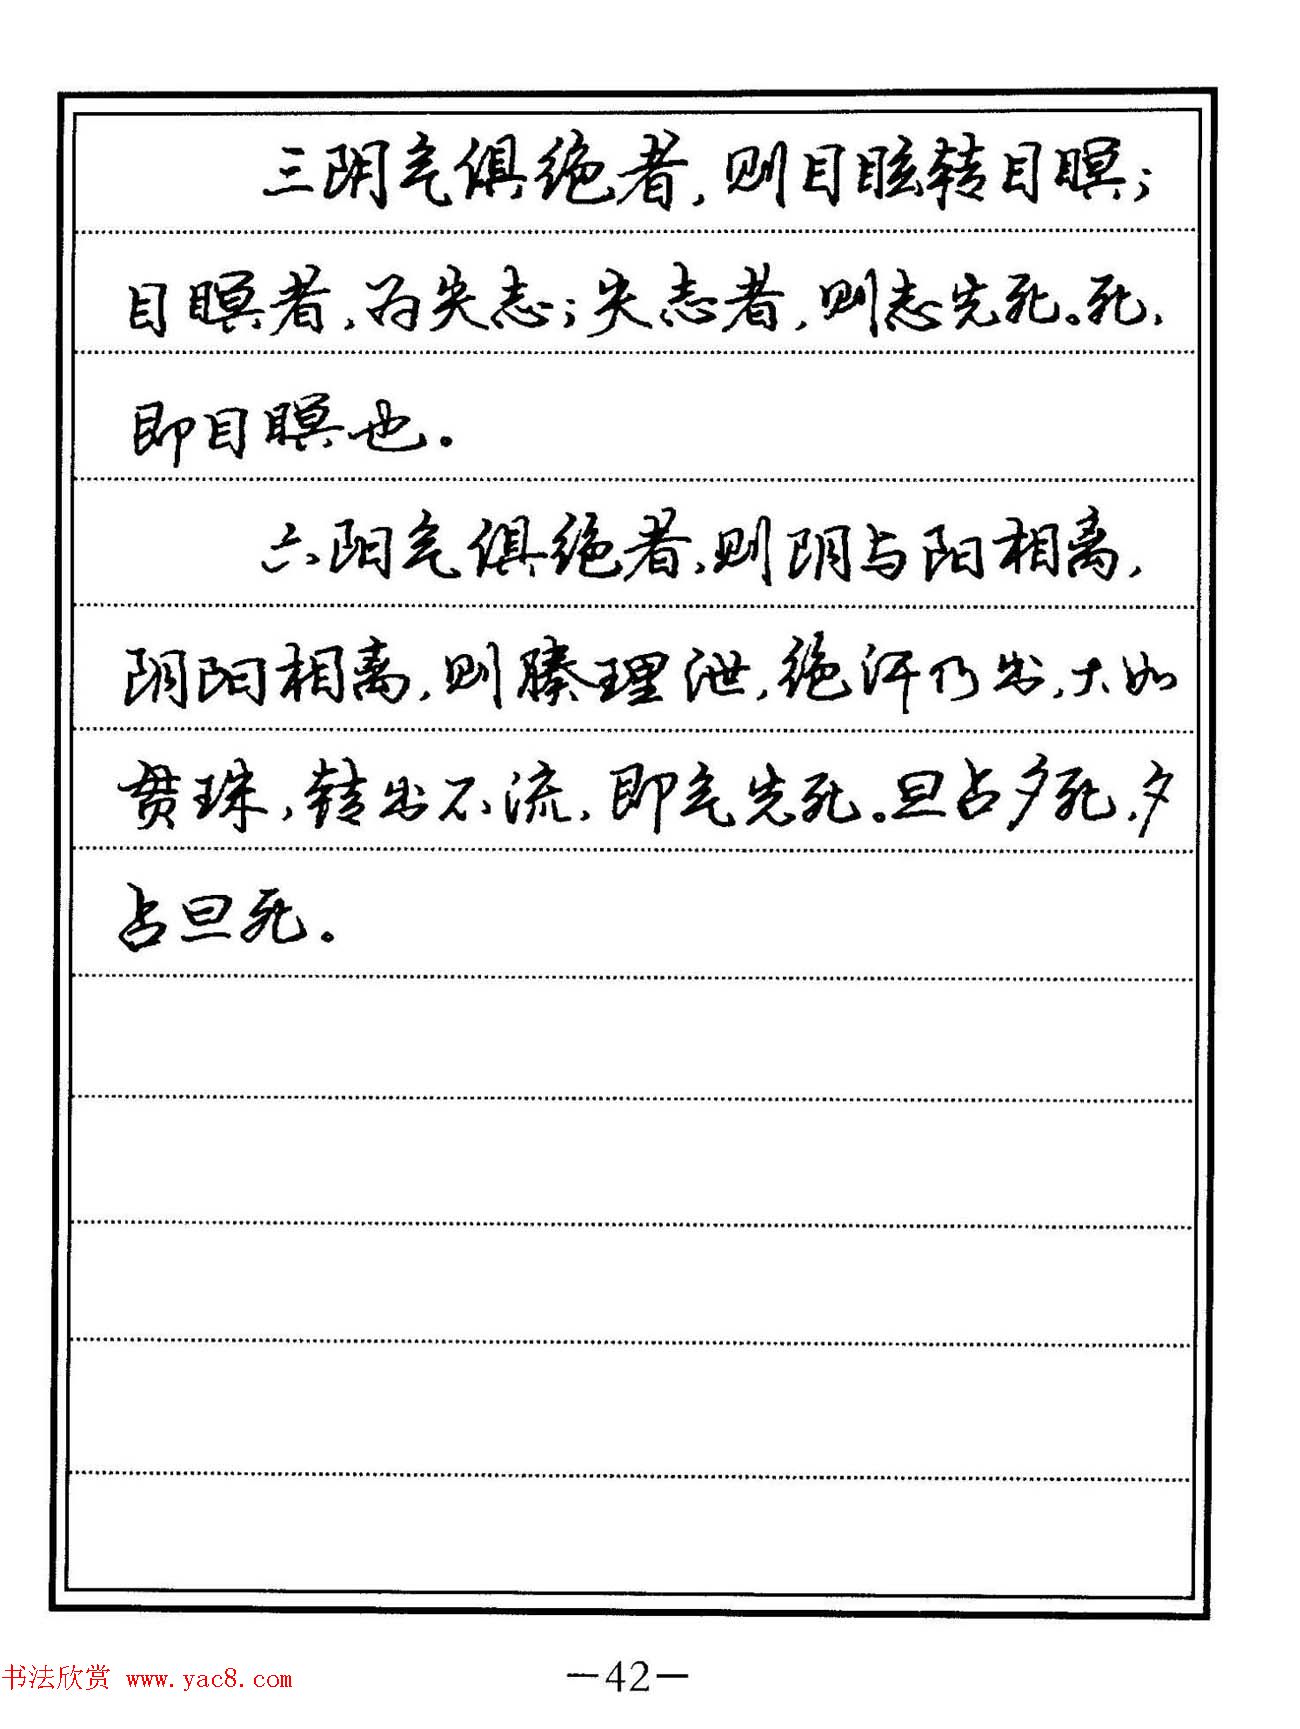 三阴气俱绝者，则目眩转目瞑；
目瞑者，为失志；失志者，则志先死。死，
即目瞑也。
六阳气俱绝者，则阴与阳相离，
阴阳相离，则腠理泄，绝汗乃出，大如
贯珠，转出不流，即气先死。旦占夕死，夕
占旦死。
书法欣赏 www.yac8.com
—42—